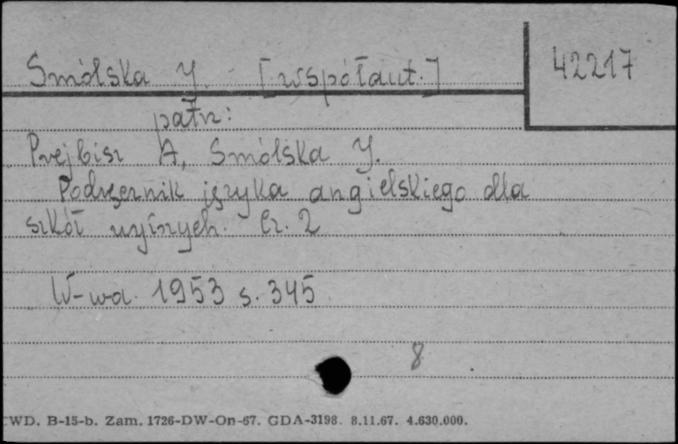 Smólska J. - [współaut.]
42217
patrz:
Prejbisz A, Smólska J.
Podręcznik języka angielskiego dla
szkół wyższych. Cz. 2
W-wa. 1953 s. 345
8
WD. B-15-b. Zam. 1726-DW-On-67. GDA-3198. 8.11.67. 4.630.000.